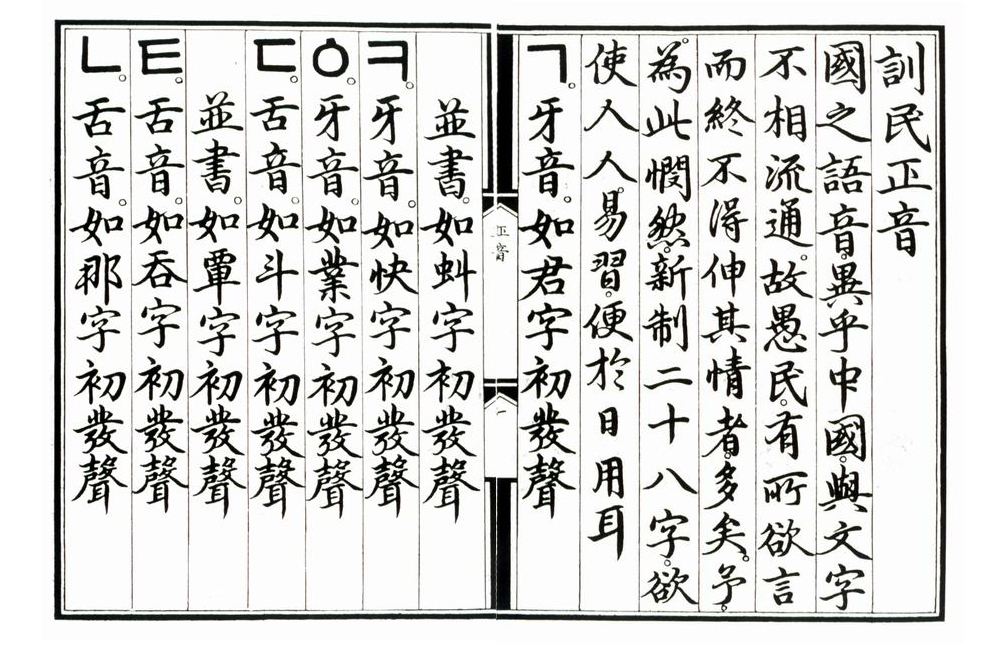 訓民正音
國之語音。異乎中國。與文字
不相流通。故愚民。有所欲言
而終不得伸其情者。多矣。予。
為此憫然。新制二十八字。欲
使人人。易習。便於日用耳
ㄱ。牙音。如君字初發聲
正音
一
並書。如虯字初發聲
ㅋ。牙音。如快字初發聲
ㆁ。牙音。如業字初發聲
ㄷ。舌音。如斗字初發聲
並書。如覃字初發聲
ㅌ。舌音。如呑字初發聲
ㄴ。舌音。如那字初發聲